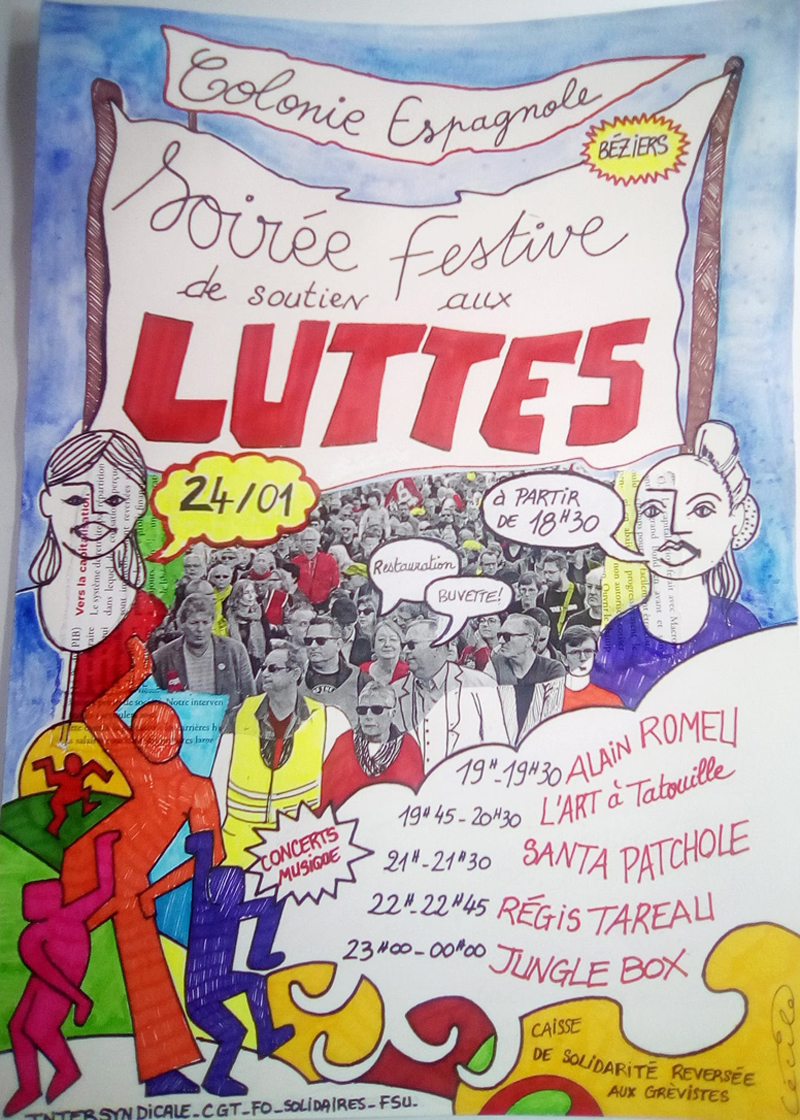 Colonie Espagnole
BÉZIERS
Soirée festive
de soutien aux
LUTTES
24/01
à PARTIR
DE 18H30
Restauration
BUVETTE!
Vers la capitalisation.
CONCERTS
MUSIQUE
19H-19H30 ALAIN ROMEU
19H45-20H30 L'ART à Tatouille
21H-21H30 SANTA PATCHOLE
22H-22H45 RÉGIS TAREAU
23H00-00H00 JUNGLE BOX
CAISSE
DE SOLIDARITÉ REVERSÉE
AUX GRÈVISTES
Cécile
INTERSYNDICALE_CGT_FO_SOLIDAIRES_FSU.